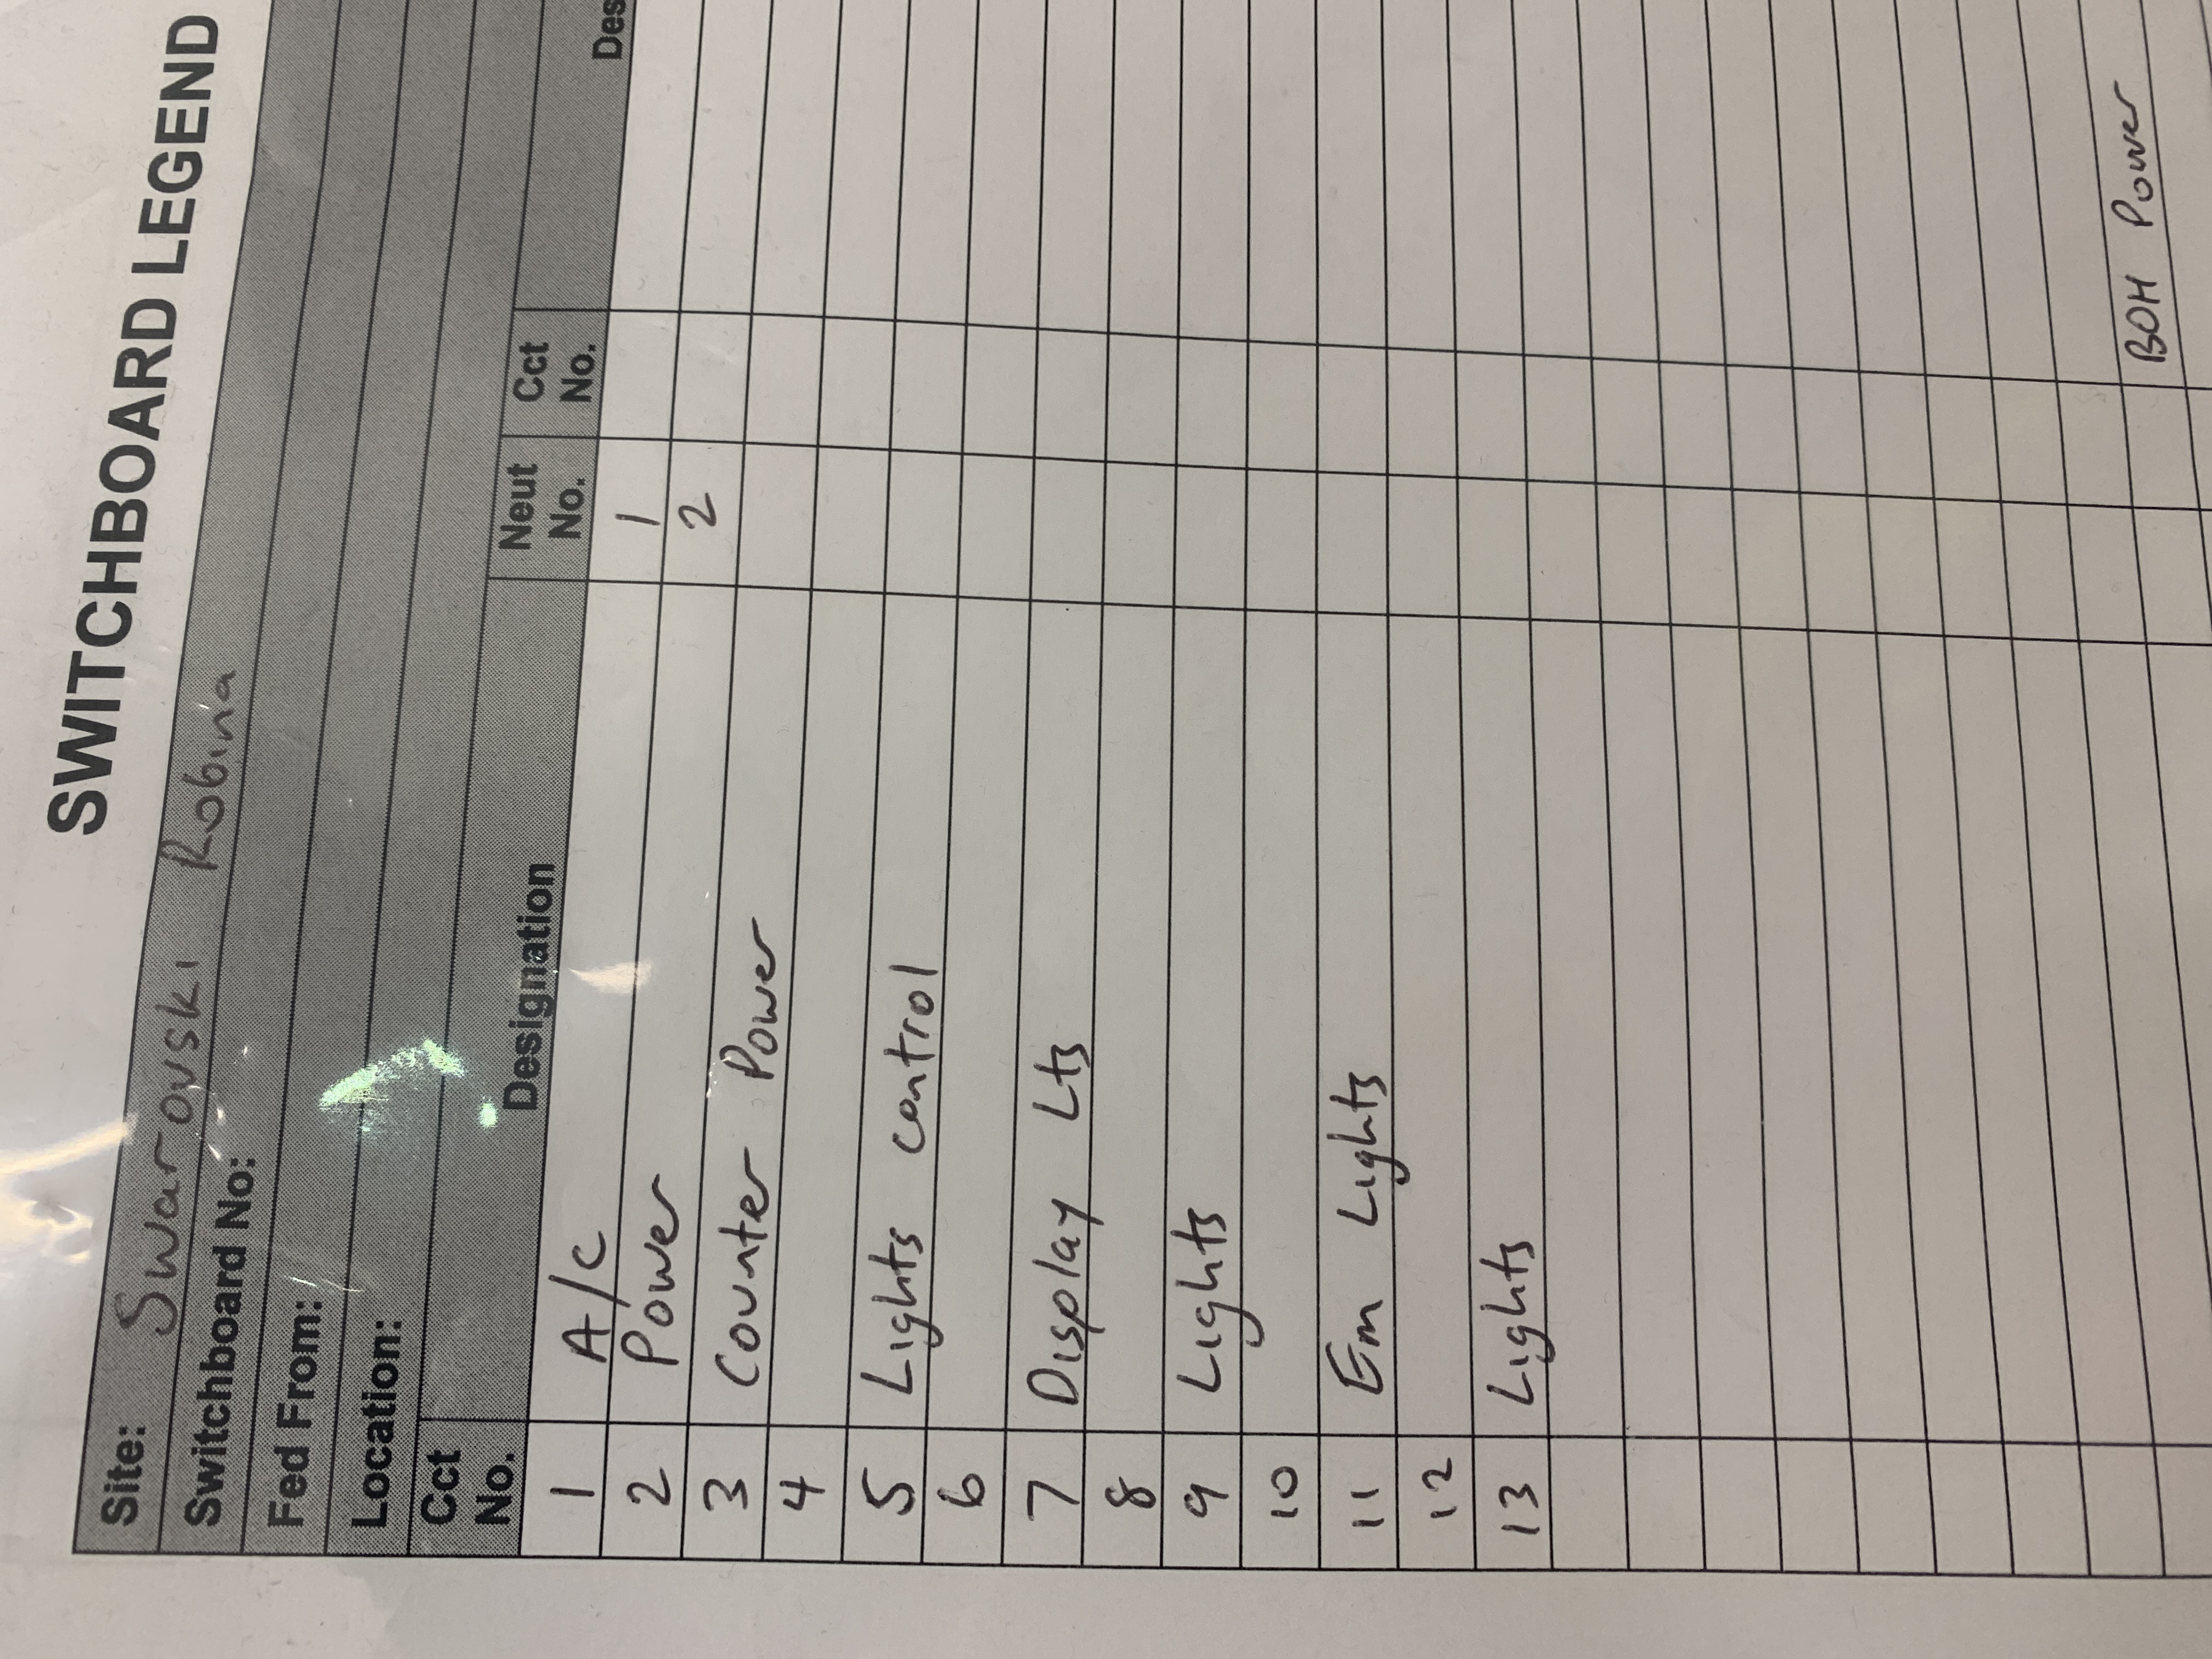 SWITCHBOARD LEGEND
Site: Swarovski Robina
Switchboard No:
Fed From:
Location:
Cct No. Designation Neut No. Cct No. Des
1 A/C 1
2 Power 2
3 Counter Power
4
5 Lights control
6
7 Display Lts
8
9 Lights
10
11 Em Lights
12
13 Lights
BOH Power